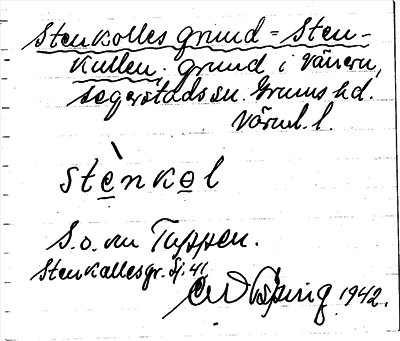 Stenkolles grund = Sten-
kullen, grund i Vänern,
Segerstads sn. Grums hd.
Värml. l.
stènkol
S.o. om Tuppen.
Stenkallesgr. Sj. 41
1942.